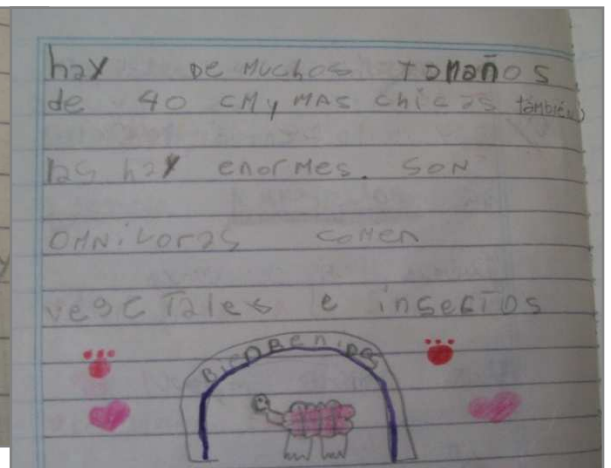 hay DE MUCHOS TAMAÑOS
de 40 CM y MAS chicas también
las hay enormes. SON
OMNivoras comen
vegetales e insectos
BIENBENIDOS